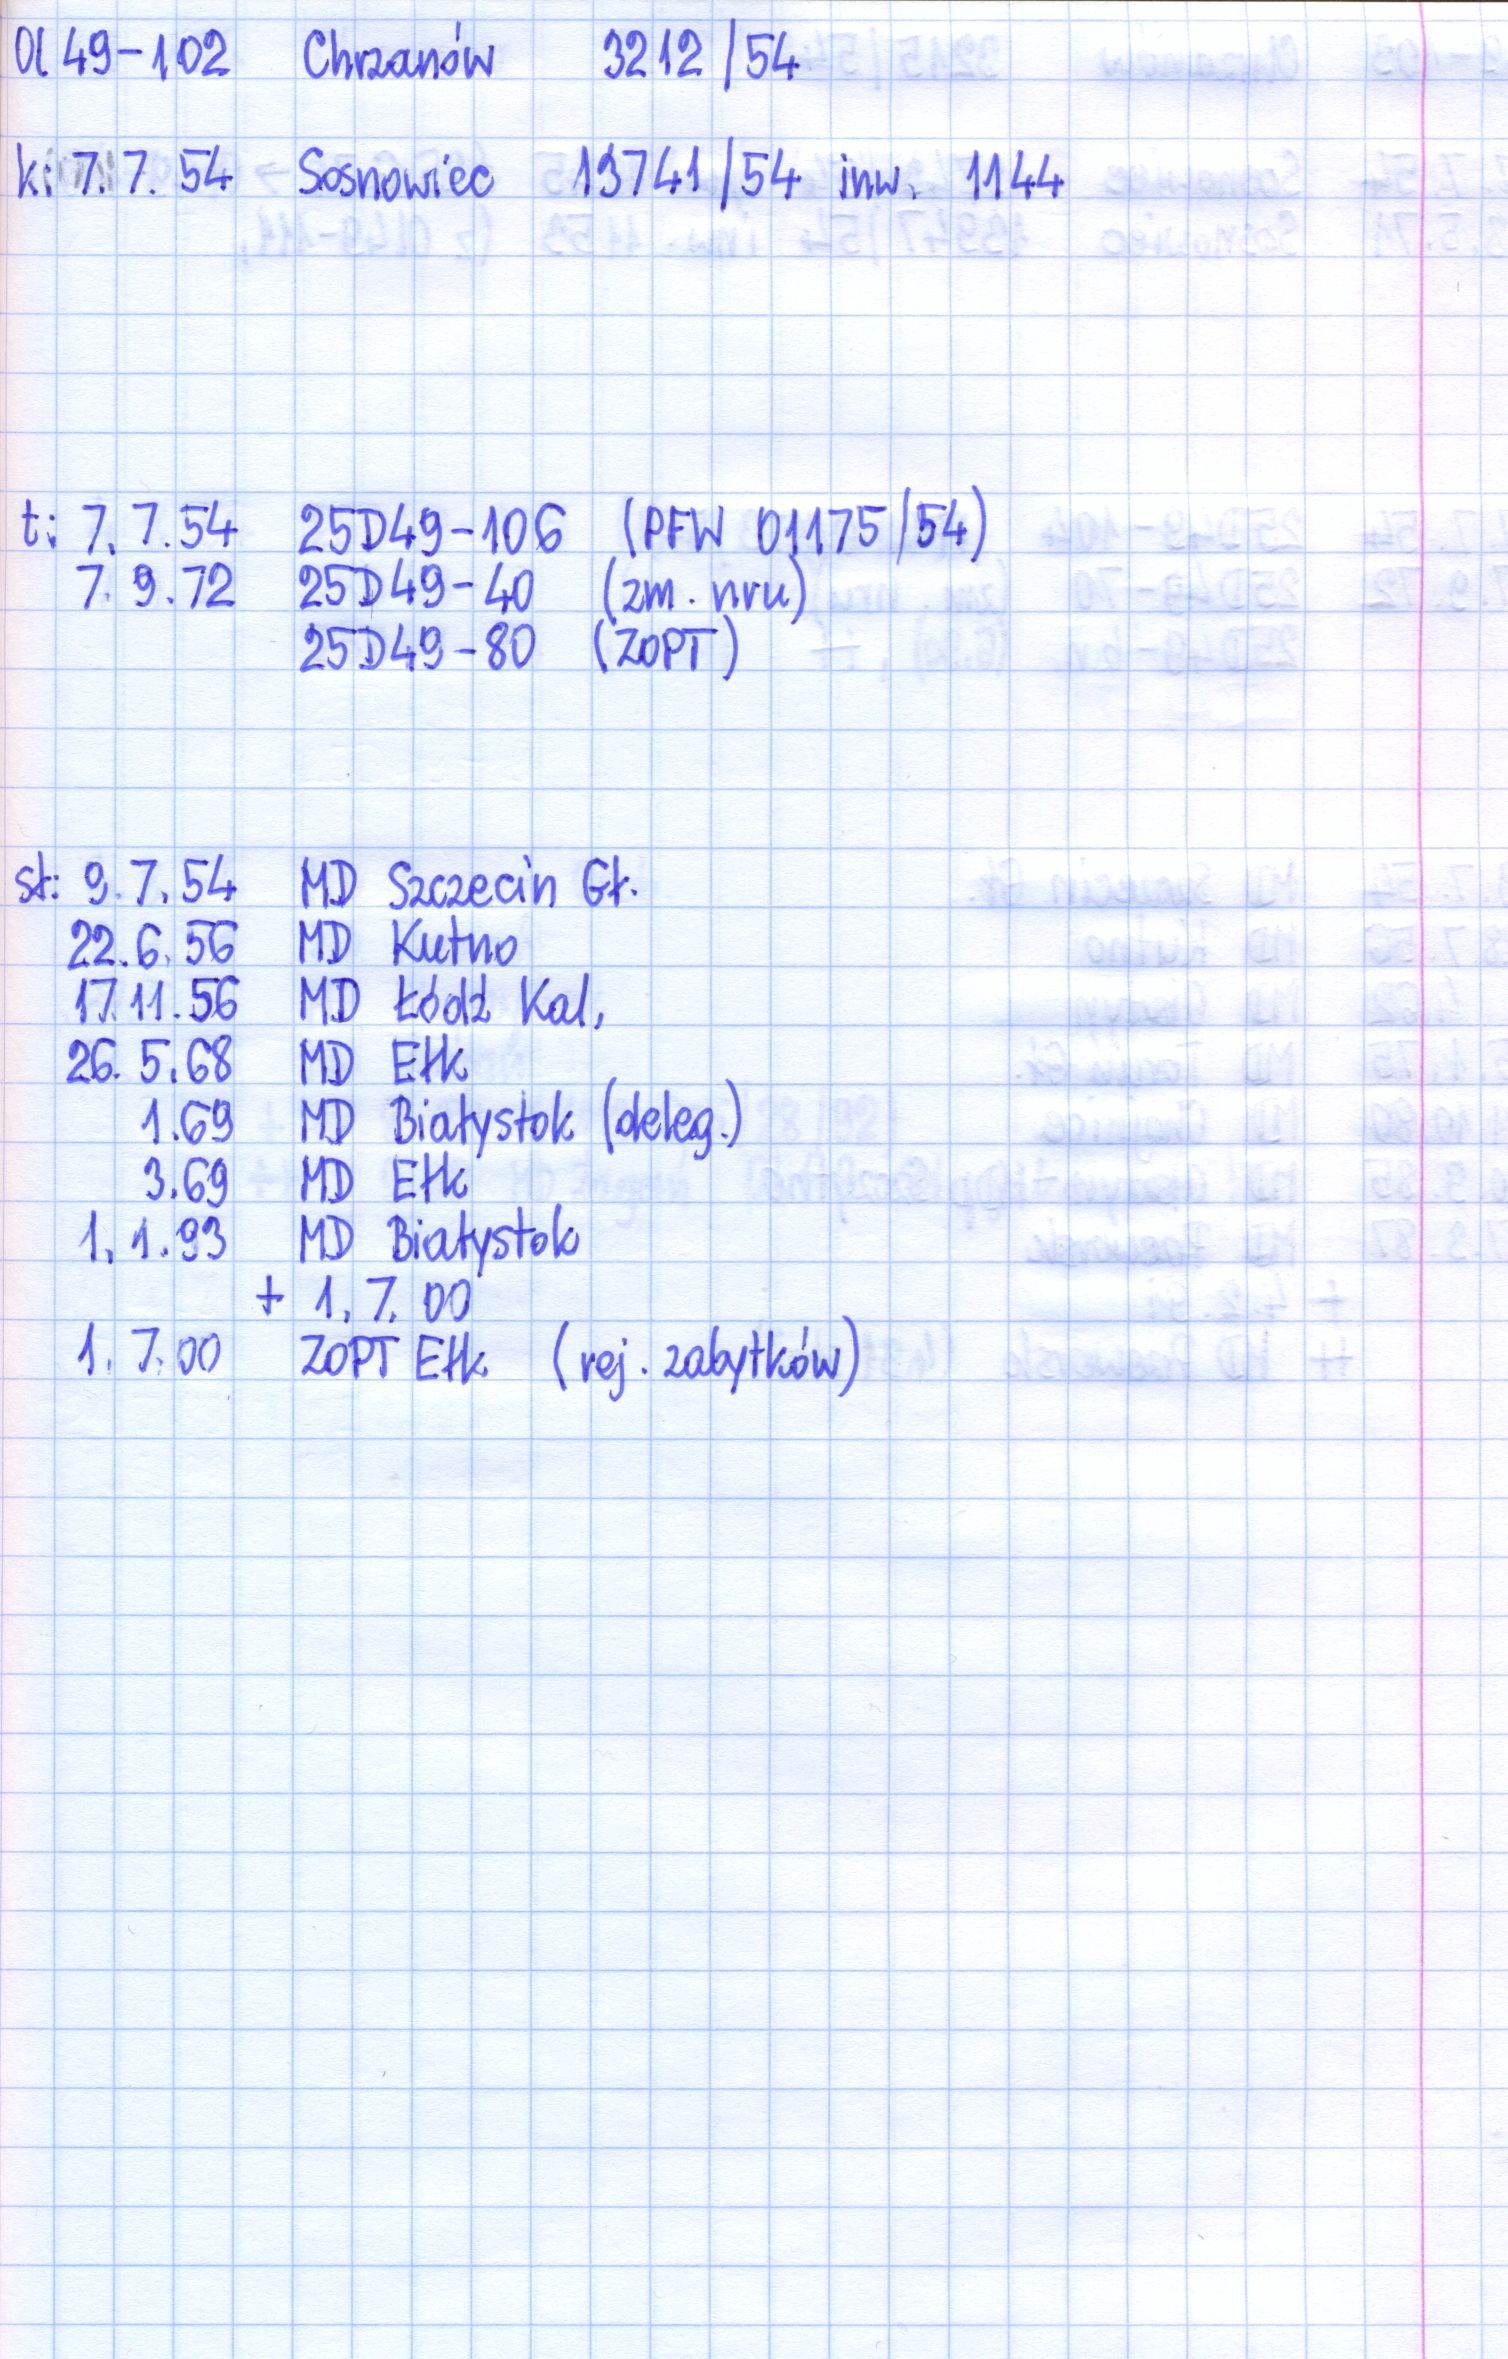 Ol 49-102 Chrzanów 3212/54
k: 7.7.54 Sosnowiec 13741/54 inw. 1144
t: 7.7.54 25D49-106 (PFW 01175/54)
7.9.72 25D49-40 (zm. nru)
25D49-80 (ZOPT)
st: 9.7.54 MD Szczecin Gł.
22.6.56 MD Kutno
17.11.56 MD Łódź Kal.
26.5.68 MD Ełk
1.69 MD Białystok (deleg.)
3.69 MD Ełk
1.1.93 MD Białystok
+ 1.7.00
1.7.00 ZOPT Ełk (rej. zabytków)